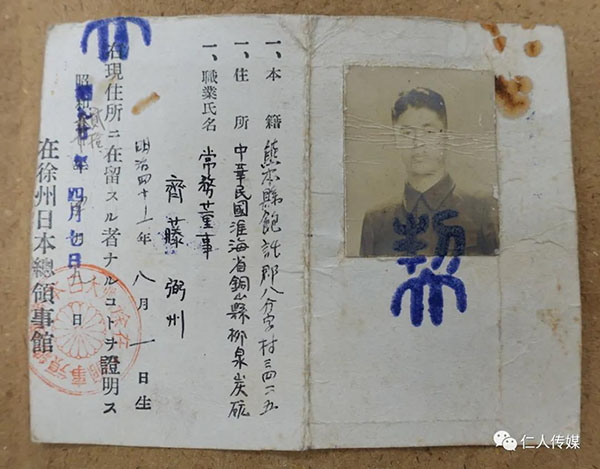 一、本籍 熊本縣飽託郡八分字村三四二五
一、住所 中華民國淮海省銅山縣柳泉炭砿
一、職業氏名 常務董事
齊藤 弼州
明治四十一年 八月 一日生
右現住所ニ在留スル者ナルコトヲ證明ス
昭和 年 四月 日
在徐州日本總領事館
仁人传媒